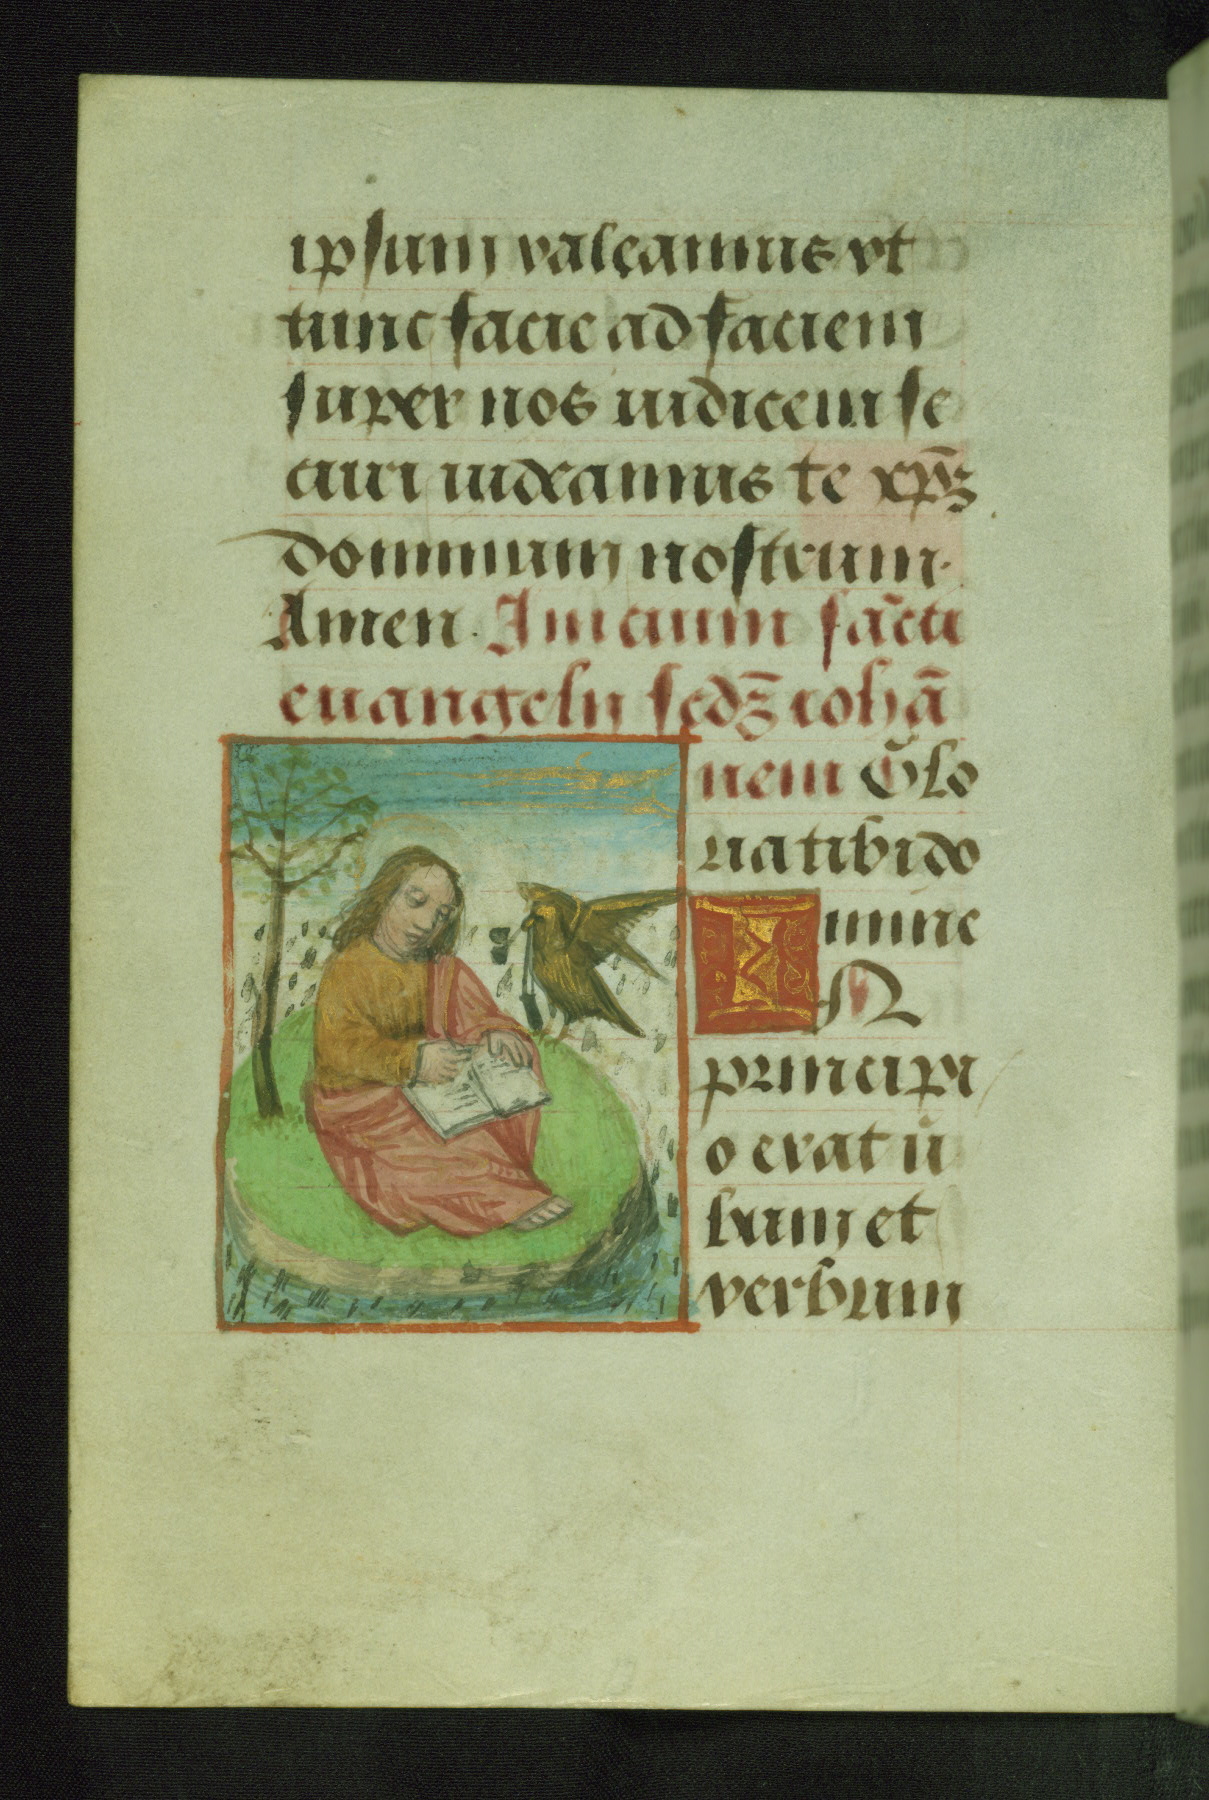 ipsum valeamus vt
tunc facie ad faciem
super nos iudicem se
curi uideamus te xp̄ꝫ
dominum nostrum.
Amen. Inicium sācti
euangelii scdꝫ iohā
nem Glo
ria tibi do
mine
IN
principi
o erat ū
bum et
verbum